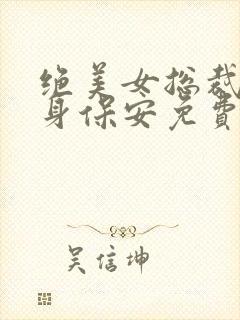 绝美女总裁
身保安免費
吴信坤